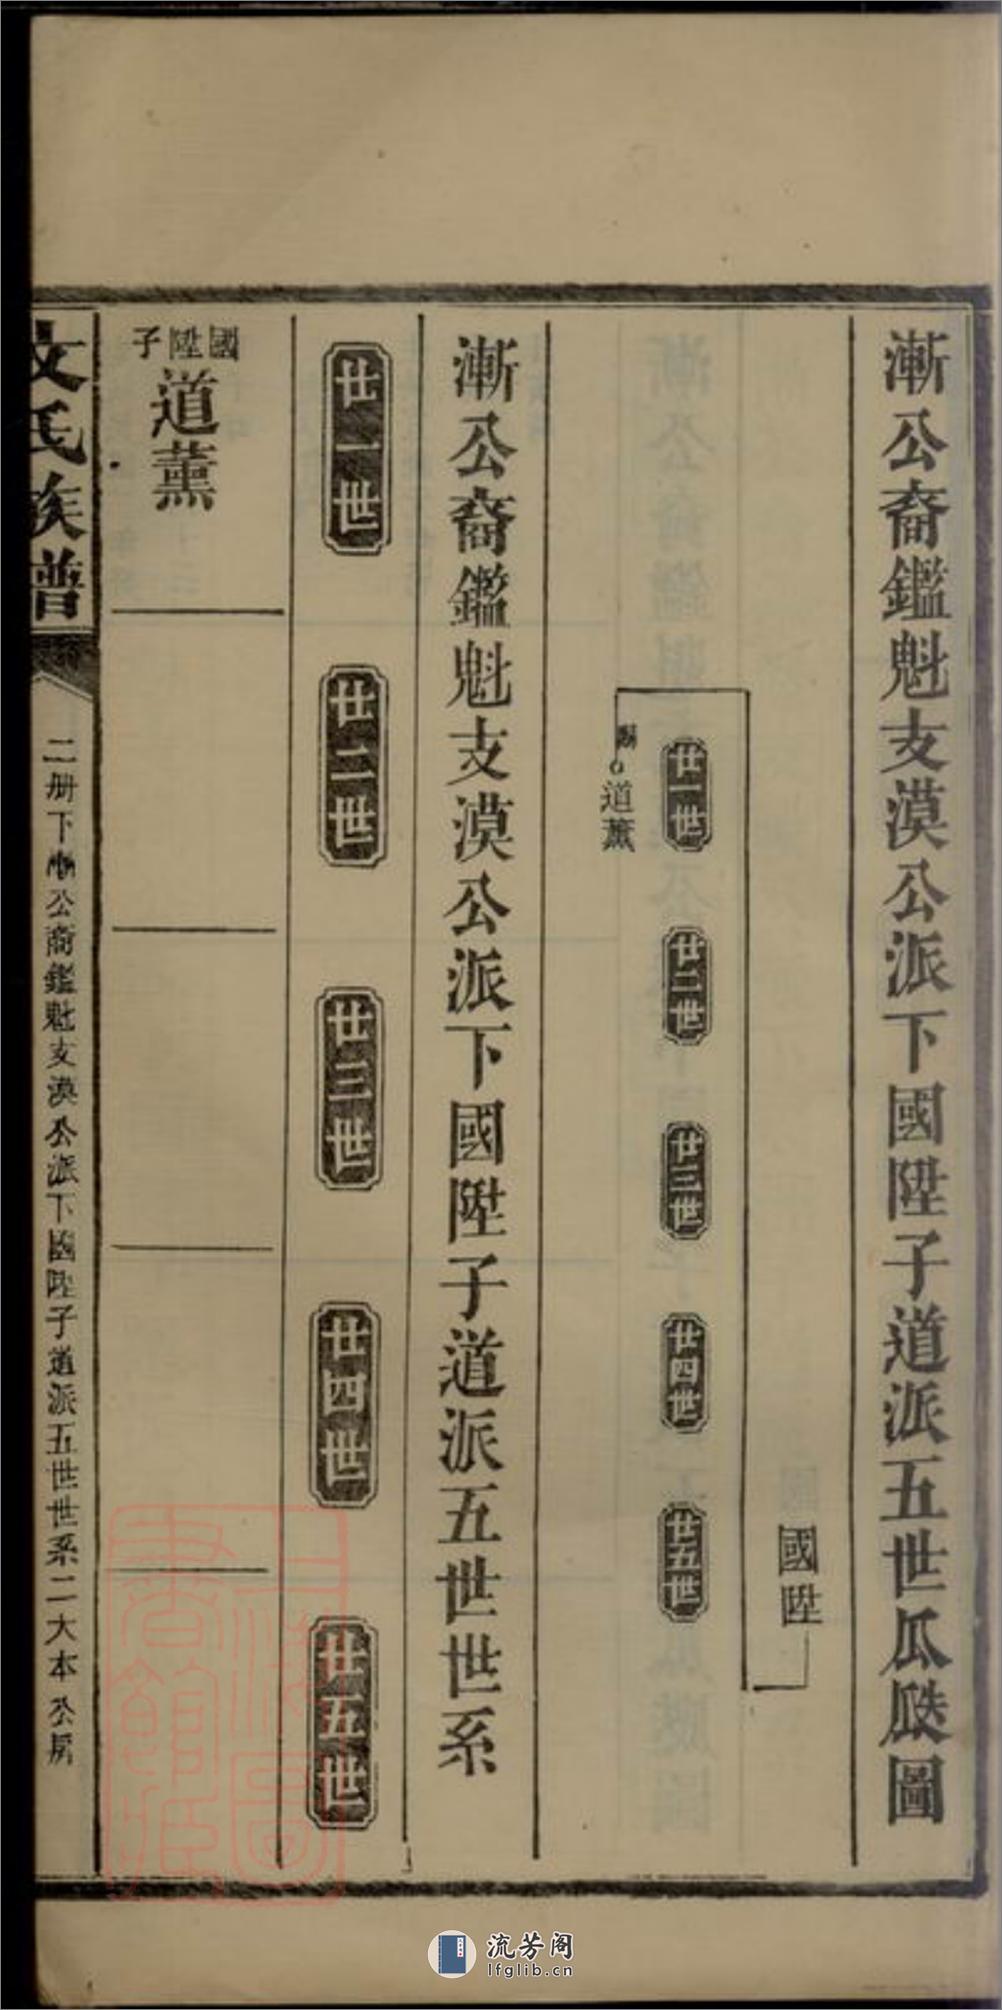 漸公裔鑑魁支漠公派下國陞子道派五世瓜瓞圖
國陞
廿一世
廿二世
廿三世
廿四世
廿五世
道薰
漸公裔鑑魁支漠公派下國陞子道派五世世系
廿一世
廿二世
廿三世
廿四世
廿五世
國陞子
道薰
文氏族譜
二册下漸公裔鑑魁支漠公派下國陞子道派五世世系二大本公房
上海圖書館藏
流芳阁
lfglib.cn